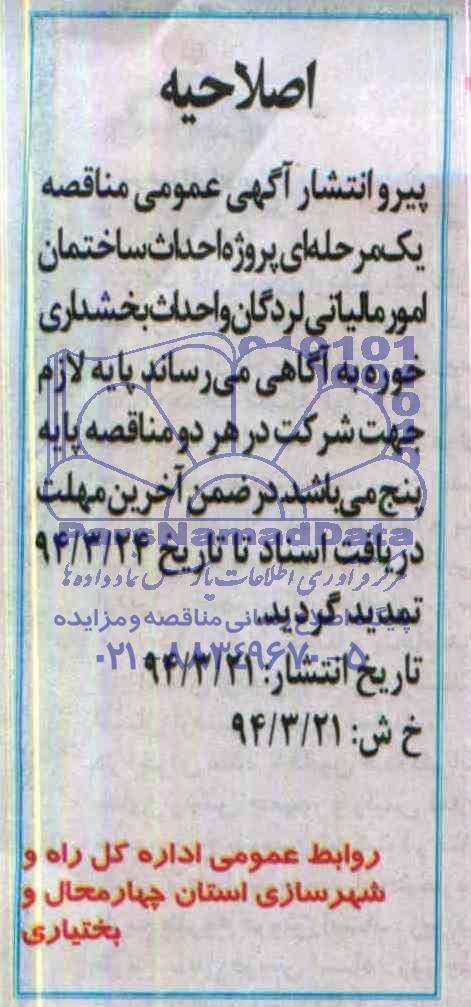 اصلاحیه
پیرو انتشار آگهی عمومی مناقصه
یک‌مرحله‌ای پروژه احداث ساختمان
امور مالیاتی لردگان و احداث بخشداری
خوره به آگاهی می‌رساند پایه لازم
جهت شرکت در هر دو مناقصه پایه
پنج می‌باشد. در ضمن آخرین مهلت
ParsNamadData
دریافت اسناد تا تاریخ ۹۴/۳/۲۴
مرکز فرآوری اطلاعات پارس نماد داده‌ها
تمدید گردید.
پایگاه اطلاع رسانی مناقصه و مزایده
۰۲۱-۸۸۳۴۹۶۷۰-۵
تاریخ انتشار: ۹۴/۳/۲۱
خ ش: ۹۴/۳/۲۱
روابط عمومی اداره کل راه و
شهرسازی استان چهارمحال و
بختیاری